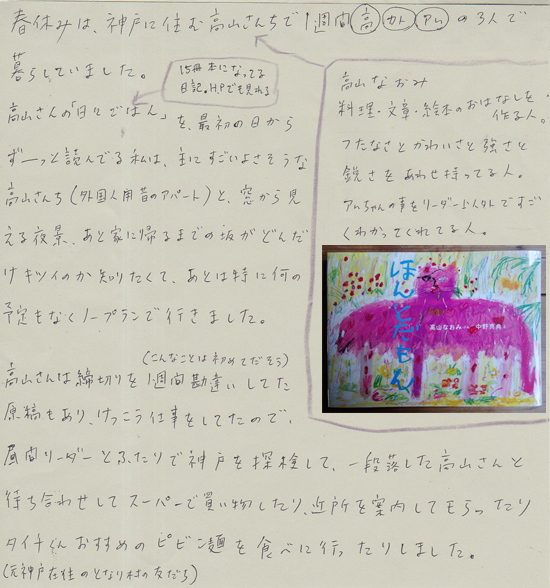 春休みは、神戸に住む高山さんちで1週間 高 カト アム の3人で
暮らしていました。
15冊本になってる
日記。HPでも見れる
高山さんの「日々ごはん」を、最初の日から
ずーっと読んでる私は、主にすごいよさそうな
高山さんち(外国人用昔のアパート)と、窓から見
える夜景、あと家に帰るまでの坂がどんだ
けキツイのか知りたくて、あとは特に何の
予定もなくノープランで行きました。
(こんなことは初めてだそう)
高山さんは締切りを1週間勘違いしてた
原稿もあり、けっこう仕事をしてたので、
昼間リーダーとふたりで神戸を探検して、一段落した高山さんと
待ち合わせしてスーパーで買い物したり、近所を案内してもらったり
タイチくんおすすめのピビン麺を食べに行ったりしました。
(元神戸在住のとなり村の友だち)
高山なおみ
料理・文章・絵本のおはなしを
作る人。
つたなさとかわいさと強さと
鋭さをあわせ持ってる人。
アムちゃんの事をリーダー以外ですご
くわかってくれてる人。
ほんとだもん
高山なおみ 中野真典